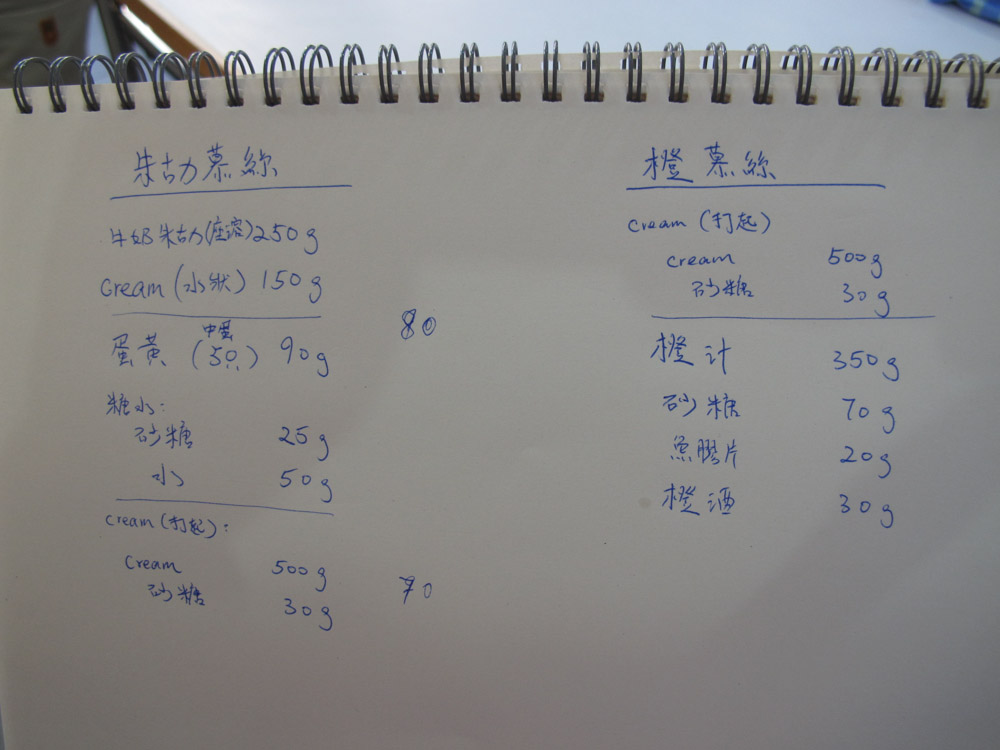 朱古力慕絲
牛奶朱古力(座溶)250g
cream(水狀)150g
蛋黃(中蛋5只)90g
80
糖水:
砂糖 25g
水 50g
cream(打起):
cream 500g
砂糖 30g
70
橙慕絲
cream(打起)
cream 500g
砂糖 30g
橙汁 350g
砂糖 70g
魚膠片 20g
橙酒 30g